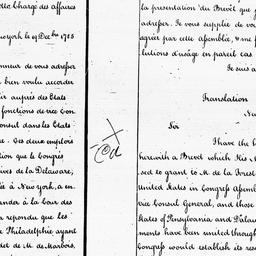 della Chargé des affaires
new york le 19 Dec.bre 1785
onneur de vous adresser
bien voulu accorder
ir auprès des Etats
fonctions de vice Con
onsul dans les Etats
Ces deux emplois
tion que le Congrès
ives de la Delaware;
lie à New york, a en
ander à la Cour des
a repondu que les
Philadelphie ayant
de M. de Marbois,
la présentation du Brevet que j
adresser. Je vous supplie de vo
agréer par cette assemblée, & me f
lutions d'usage en pareil cas
Je suis a
Translation
Sir
I have the h
herewith a Brevet which His M
sed to grant to M. de la Forest
United States in Congress Assemb
vice Consul General, and those
States of Pensylvania and Dalawa
ments have been united through
Congress would establish its res